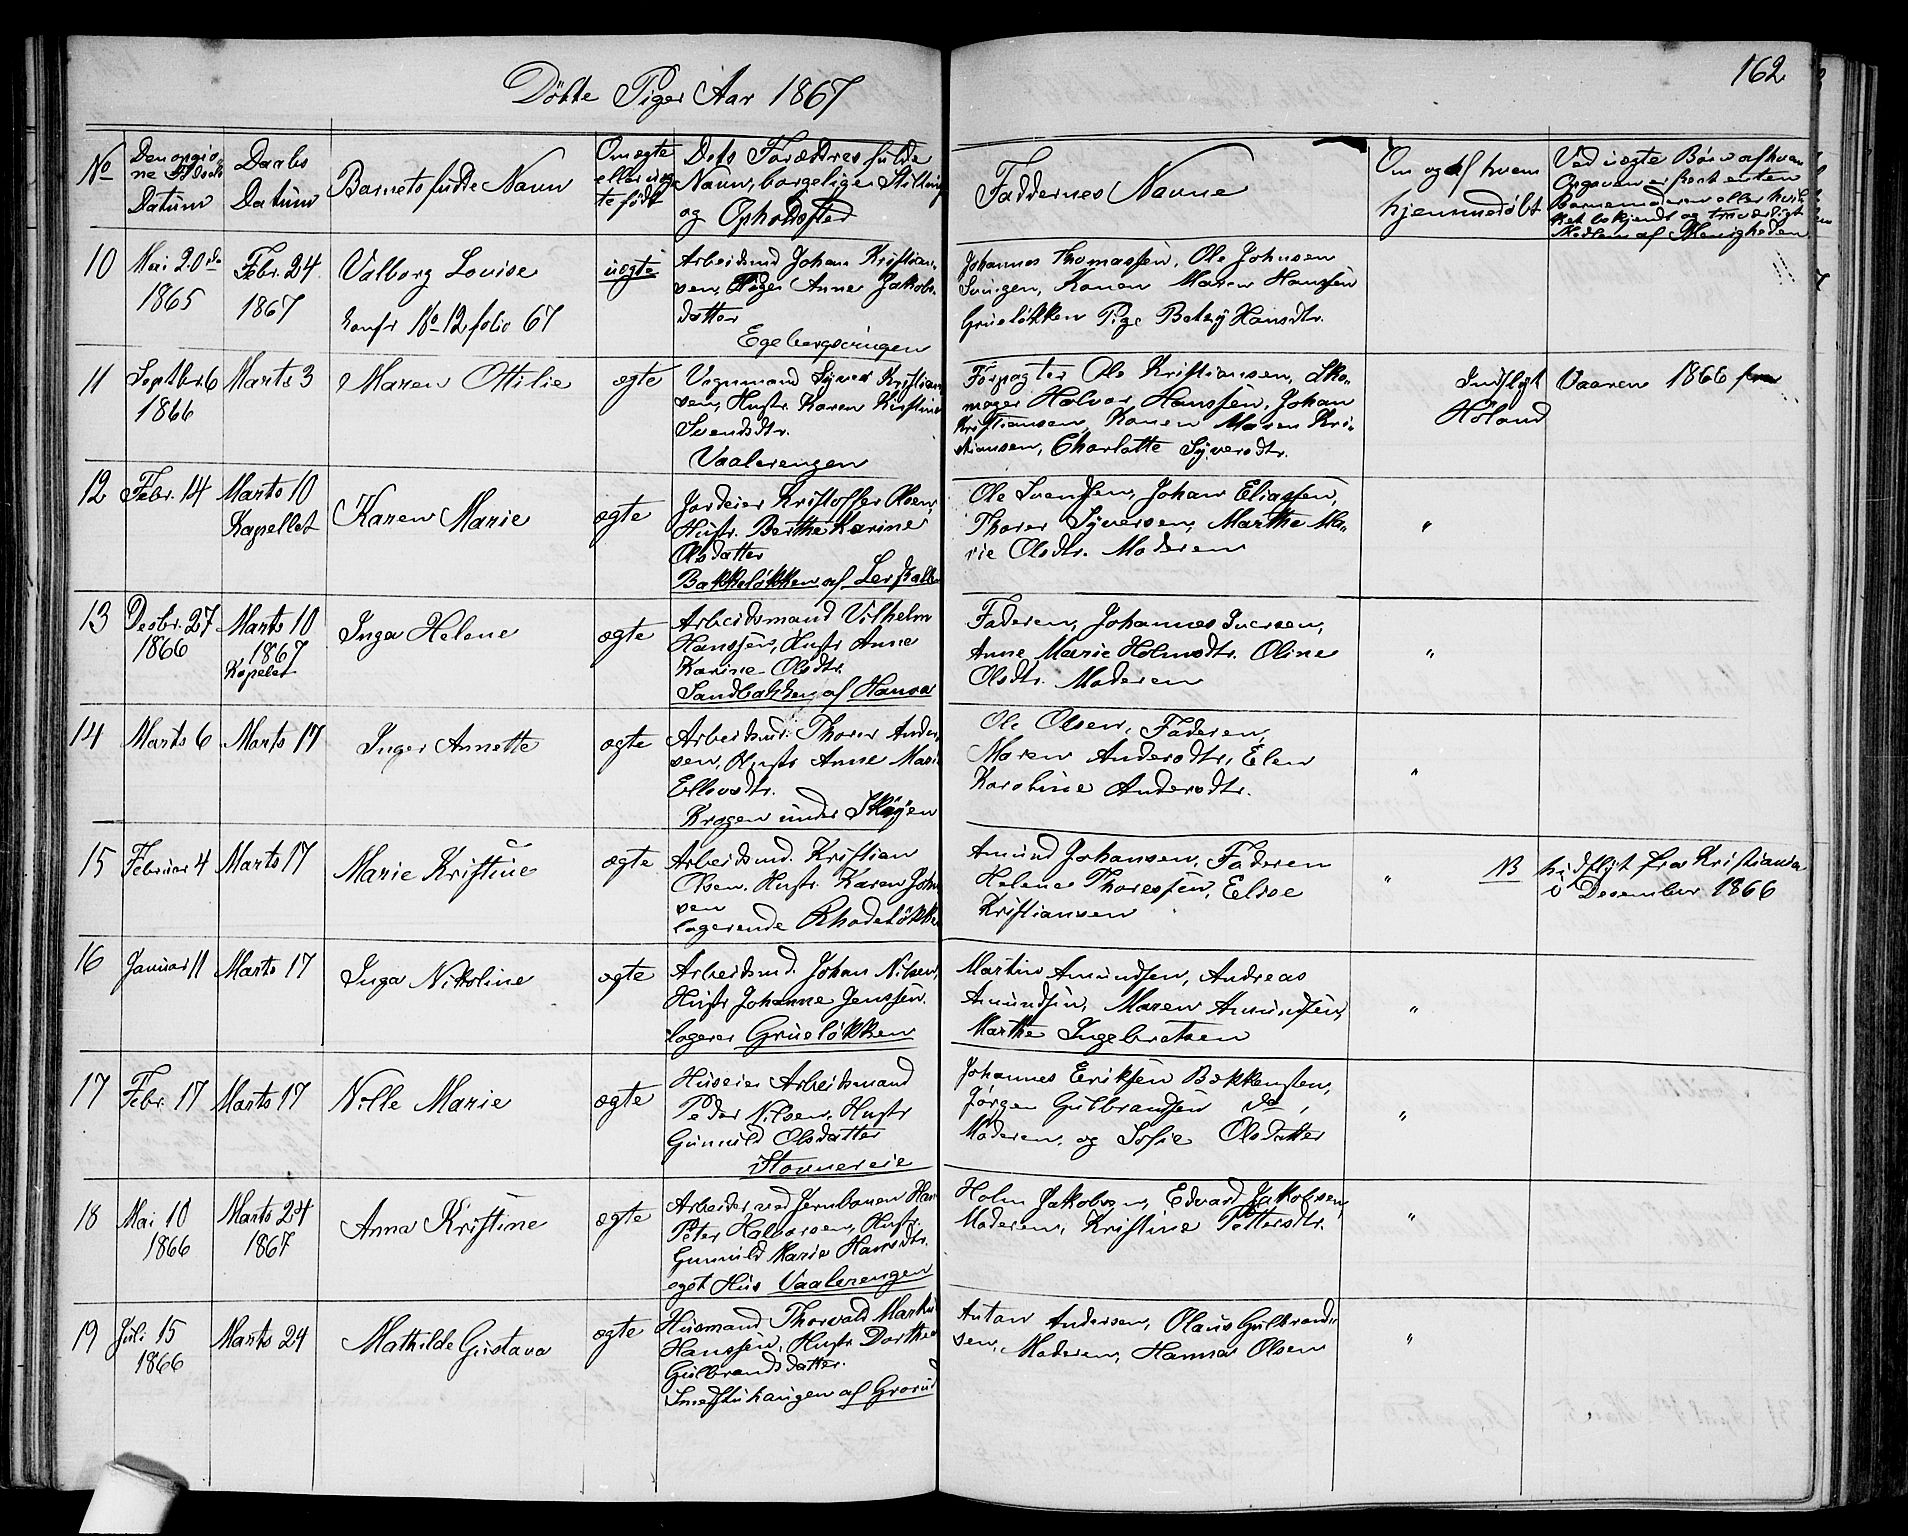 162
Döbte Piger Aar 1867
No
Den opgiv-
ne Fødsels
Datum
Daabs
Datum
Barnets fulde Navn
Om ægte
eller uæg-
te født
Dets Forældres fulde
Navn, borgelige Stilling
og Opholdsted
Faddernes Navne
Om og af hvem
hjemmedøbt
Ved uægte Børn af hvem
Opgaven er skeet enten
Barnemoderen eller hvil-
ket bekjendt og troværdigt
Medlem af Menigheden
10
Mai 20de
1865
Febr. 24
1867
Valborg Louise
konfr No 12 folio 67
uægte
Arbeidsmd Johan Kristian-
sen, Piger Anne Jakobs-
datter
Egebergsvingen
Johannes Thomassen, Ole Johnsen
Svingen, Konen Maren Hanssen
Grueløkken Pige Betzy Hansdtr.
11
Septber 6
1866
Marts 3
Maren Ottilie
ægte
Vognmand Syver Kristian-
sen, Hustr. Karen Kirstine
Svendsdtr.
Vaalerengen
Forpagter Ole Kristiansen, Sko-
mager Halvor Hanssen, Johan
Kristiansen, Konen Maren Kri-
stiansen, Charlotte Syversdtr.
Indflyt Vaaren 1866 fra
Høland
12
Febr. 14
Marts 10
Kapellet
Karen Marie
ægte
Jordeier Kristoffer Olsen,
Hustr. Berthe Karine
Olsdatter
Bakkeløkken af Leirskallen
Ole Svendsen, Johan Eliassen,
Thorer Syversen, Marthe Ma-
rie Olsdtr. Moderen
"
13
Desbr. 27
1866
Marts 10
1867
Kapelet
Inga Helene
ægte
Arbeidsmand Vilhelm
Hanssen, Hustr Anne
Karine Olsdtr.
Sandbakken af Hauger
Faderen, Johannes Iversen,
Anne Marie Holmsdtr. Oline
Olsdtr. Moderen
"
14
Marts 6
Marts 17
Inger Annette
ægte
Arbeidsmd. Thorer Ander-
sen, Hustr Anne Marie
Ellevsdtr.
Krogen under Skøyen
Ole Olsen, Faderen,
Maren Andersdtr, Elen
Karoline Andersdtr.
"
15
Februar 4
Marts 17
Marie Kristine
ægte
Arbeidsmd. Kristian
Olsen. Hustr Karen John-
sen
logerende Rhodeløkken
Amund Johansen, Faderen
Helene Thoressen, Elise
Kristiansen
"
NB
hidflyt fra Kristiania
i Desember 1866
16
Januar 11
Marts 17
Inga Nikoline
ægte
Arbeidsmd. Johan Nilsen,
Hustr Johanne Jenssen.
logerer Grueløkken
Martin Amundsen, Andreas
Amundsen, Maren Amundsen,
Marthe Ingebretsen
"
17
Febr. 17
Marts 17
Nille Marie
ægte
Huseier Arbeidsmand
Peder Nilsen, Hustr
Gunnild Olsdatter
Stovnereie
Johannes Eriksen Bakkensten,
Jørgen Gulbrandsen do,
Moderen, og Sofie Olsdatter
"
18
Mai 10
1866
Marts 24
1867
Anna Kristine
ægte
Arbeider ved Jernbanen Hans
Peter Halvorsen, Hustr.
Gunnild Marie Hansdtr.
eget Hus Vaalerengen
Holm Jakobsen, Edvard Jakobsen,
Moderen, Kristine Pettersdtr.
"
19
Juli 15
1866
Marts 24
Mathilde Gustava
ægte
Husmand Thorvald Markus
Hanssen, Hustr Dorthea
Gulbrandsdatter.
Smedstuhaugen af Grorud
Anton Andersen, Olaus Gulbrand-
sen, Moderen, Hanna Olsen
"